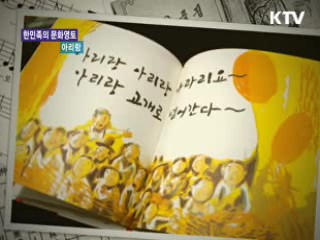 KTV
한민족의 문화영토
아리랑
아리랑 아리랑 아라리요~
아리랑 고개로 넘어간다~